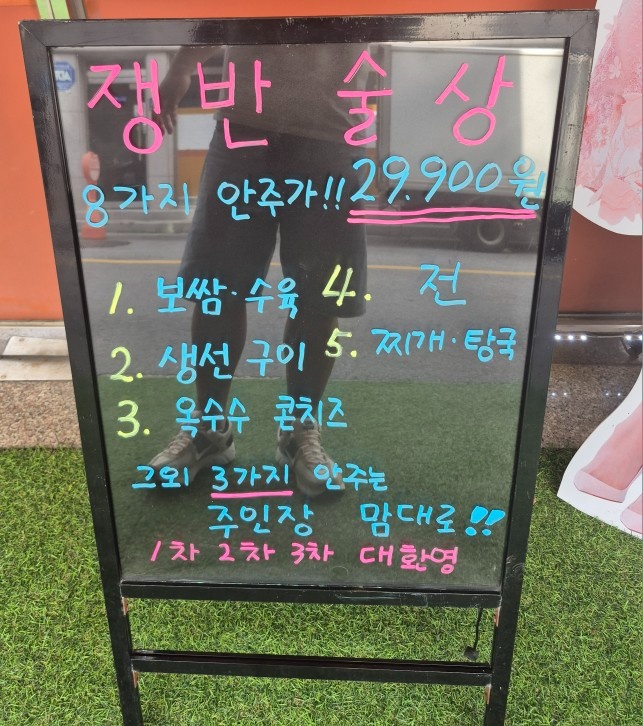 쟁반 술상
8가지 안주가!! 29.900원
1. 보쌈·수육
2. 생선 구이
3. 옥수수 콘치즈
4. 전
5. 찌개·탕국
그외 3가지 안주는
주인장 맘대로!!
1차 2차 3차 대환영